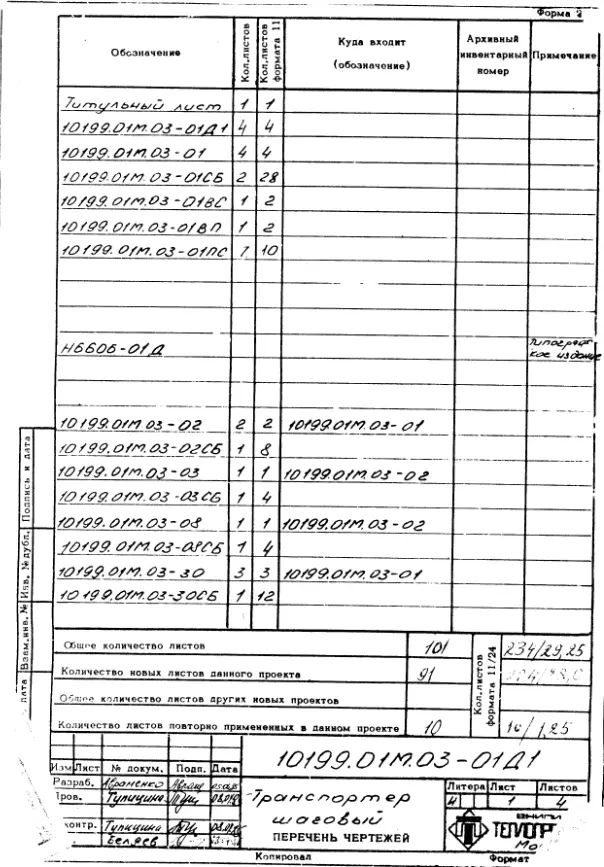 Форма 2
Обозначение Кол.листов Кол.листов формата 11 Куда входит (обозначение) Архивный инвентарный номер Примечание
Титульный лист 1 1
10199.01М.03-01Д1 4 4
10199.01М.03-01 4 4
10199.01М.03-01СБ 2 28
10199.01М.03-01ВС 1 2
10199.01М.03-01ВП 1 2
10199.01М.03-01ПС 7 10
Н6606-01Д
10199.01М.03-02 2 2 10199.01М.03-01
10199.01М.03-02СБ 1 8
10199.01М.03-03 1 1 10199.01М.03-02
10199.01М.03-03СБ 1 4
10199.01М.03-08 1 1 10199.01М.03-02
10199.01М.03-08СБ 1 4
10199.01М.03-30 3 3 10199.01М.03-01
10199.01М.03-30СБ 1 12
Подпись и дата
Инв. № дубл.
Взам.инв.№
дата
Общее количество листов 101 Кол.листов формата 11/24 234/29,25
Количество новых листов данного проекта 91
Общее количество листов других новых проектов
Количество листов повторно примененных в данном проекте 10 10/1,25
10199.01М.03-01Д1
Изм Лист № докум. Подп. Дата
Разраб.
Пров. Тупицина
контр. Тупицина
Беляев
Транспортер
шаговый
ПЕРЕЧЕНЬ ЧЕРТЕЖЕЙ
Литера Лист Листов
И 1 4
Копировал Формат